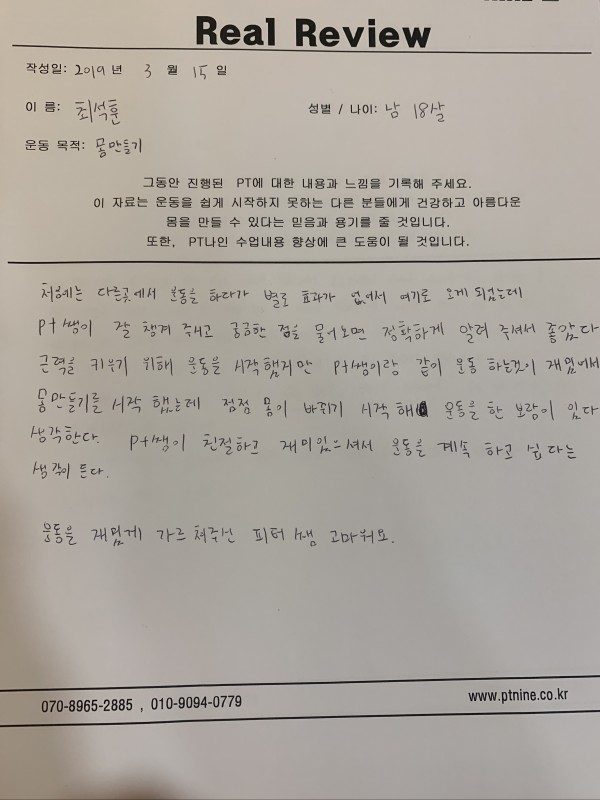 Real Review
작성일: 2019 년 3 월 15 일
이 름: 최석훈 성별 / 나이: 남 18살
운동 목적: 몸만들기
그동안 진행된 PT에 대한 내용과 느낌을 기록해 주세요.
이 자료는 운동을 쉽게 시작하지 못하는 다른 분들에게 건강하고 아름다운
몸을 만들 수 있다는 믿음과 용기를 줄 것입니다.
또한, PT나인 수업내용 향상에 큰 도움이 될 것입니다.
처음에는 다른곳에서 운동을 하다가 별로 효과가 없어서 여기로 오게 되었는데
pt쌤이 잘 챙겨 주시고 궁금한 점을 물어보면 정확하게 알려 주셔서 좋았다
근력을 키우기 위해 운동을 시작했지만 pt쌤이랑 같이 운동 하는것이 재밌어서
몸만들기를 시작 했는데 점점 몸이 바뀌기 시작 해 운동을 한 보람이 있다
생각한다. pt쌤이 친절하고 재미있으셔서 운동을 계속 하고 싶다는
생각이 든다.
운동을 재밌게 가르쳐주신 피티 쌤 고마워요.
070-8965-2885 , 010-9094-0779 www.ptnine.co.kr